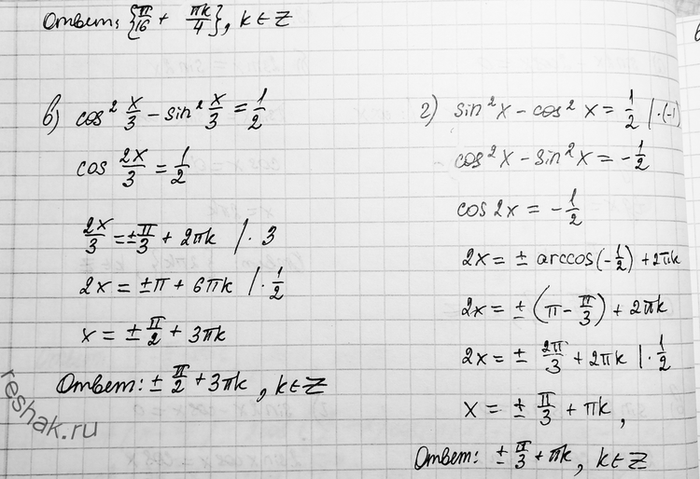 Ответ: {π/16 + πk/4}, k∈Z
в) cos² x/3 − sin² x/3 = 1/2
cos 2x/3 = 1/2
2x/3 = ± π/3 + 2πk | · 3
2x = ± π + 6πk | · 1/2
x = ± π/2 + 3πk
Ответ: ± π/2 + 3πk, k∈Z
г) sin² x − cos² x = 1/2 | · (-1)
cos² x − sin² x = − 1/2
cos 2x = − 1/2
2x = ± arccos(− 1/2) + 2πk
2x = ± (π − π/3) + 2πk
2x = ± 2π/3 + 2πk | · 1/2
x = ± π/3 + πk,
Ответ: ± π/3 + πk, k∈Z
reshak.ru